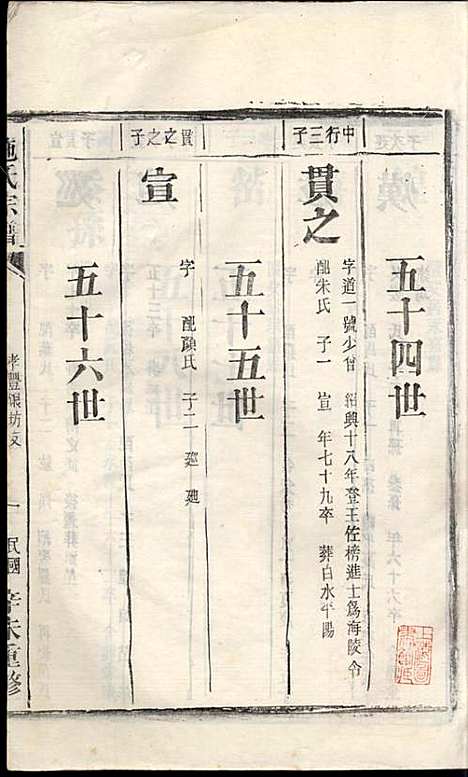 五十四世
中行三子
貫之
字道一號少曾 紹興十八年登王佐榜進士爲海陵令
配朱氏 子一 宣 年七十九卒 葬白水平陽
五十五世
貫之之子
宣
字 配顏氏 子二
五十六世
施氏宗譜
孝豐 坊支
一
民國辛未重修